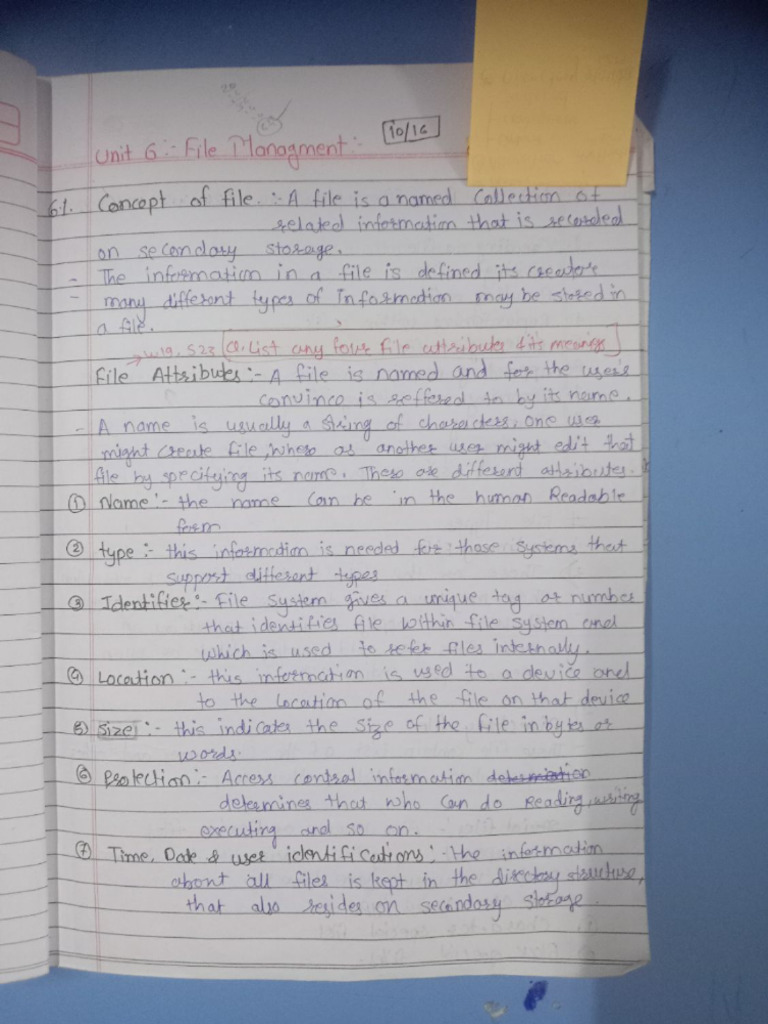 10/16
Unit 6 :- File Managment :-
6.1. Concept of file. :- A file is a named Collection of
related information that is recorded
on secondary storage.
- The information in a file is defined its creators
- many different types of Information may be stored in
a file.
→ W19, S23 [Q. List any four file attributes & its meanings]
File Attributes :- A file is named and for the user's
convince is reffered to by its name.
- A name is usually a string of characters, one user
might create file, where as another user might edit that
file by specifying its name. These are different attributes.
① Name :- the name can be in the human Readable
form
② type :- this information is needed for those systems that
support different types
③ Identifier :- File System gives a unique tag or number
that identifies file, within file system and
which is used to refer files internally.
④ Location :- this information is used to a device and
to the location of the file on that device
⑤ Size :- this indicates the size of the file in bytes or
words.
⑥ Protection :- Access control information
determines that who can do Reading, writing
executing and so on.
⑦ Time, Date & user identifications :- the information
about all files is kept in the directory structure,
that also resides on secondary storage.